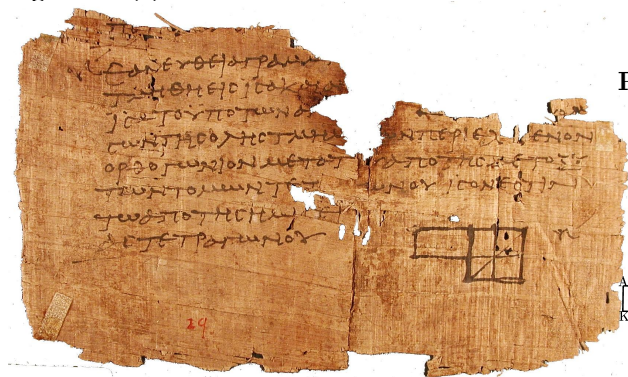 ΕΑΝ ΕΥΘΕΙΑ ΓΡΑΜΜ
ΤΜΗΘΗ ΕΙϹ ΙϹΑ Κ
ΙϹΑ ΤΟ ΥΠΟ ΤΩΝ Α
ϹΩΝ ΤΗϹ ΟΛΗϹ ΤΜΗ ΩΝ ΠΕΡΙΕΧ ΕΝΟΝ
ΟΡΘΟΓΩΝΙΟΝ ΜΕΤΑ ΤΟΥ ΑΠΟ ΤΗϹ ΜΕΤΟΞΥ
ΤΩΝ ΤΟΜΩΝ ΤΕΤ ΩΝΟΥ ΙϹΟΝ ΕϹΤΙΝ
ΤΩ ΑΠΟ ΤΗϹ ΗΜΙϹΕΙ
ΑϹ ΤΕΤΡΑΓΩΝΟΥ
29
A
K